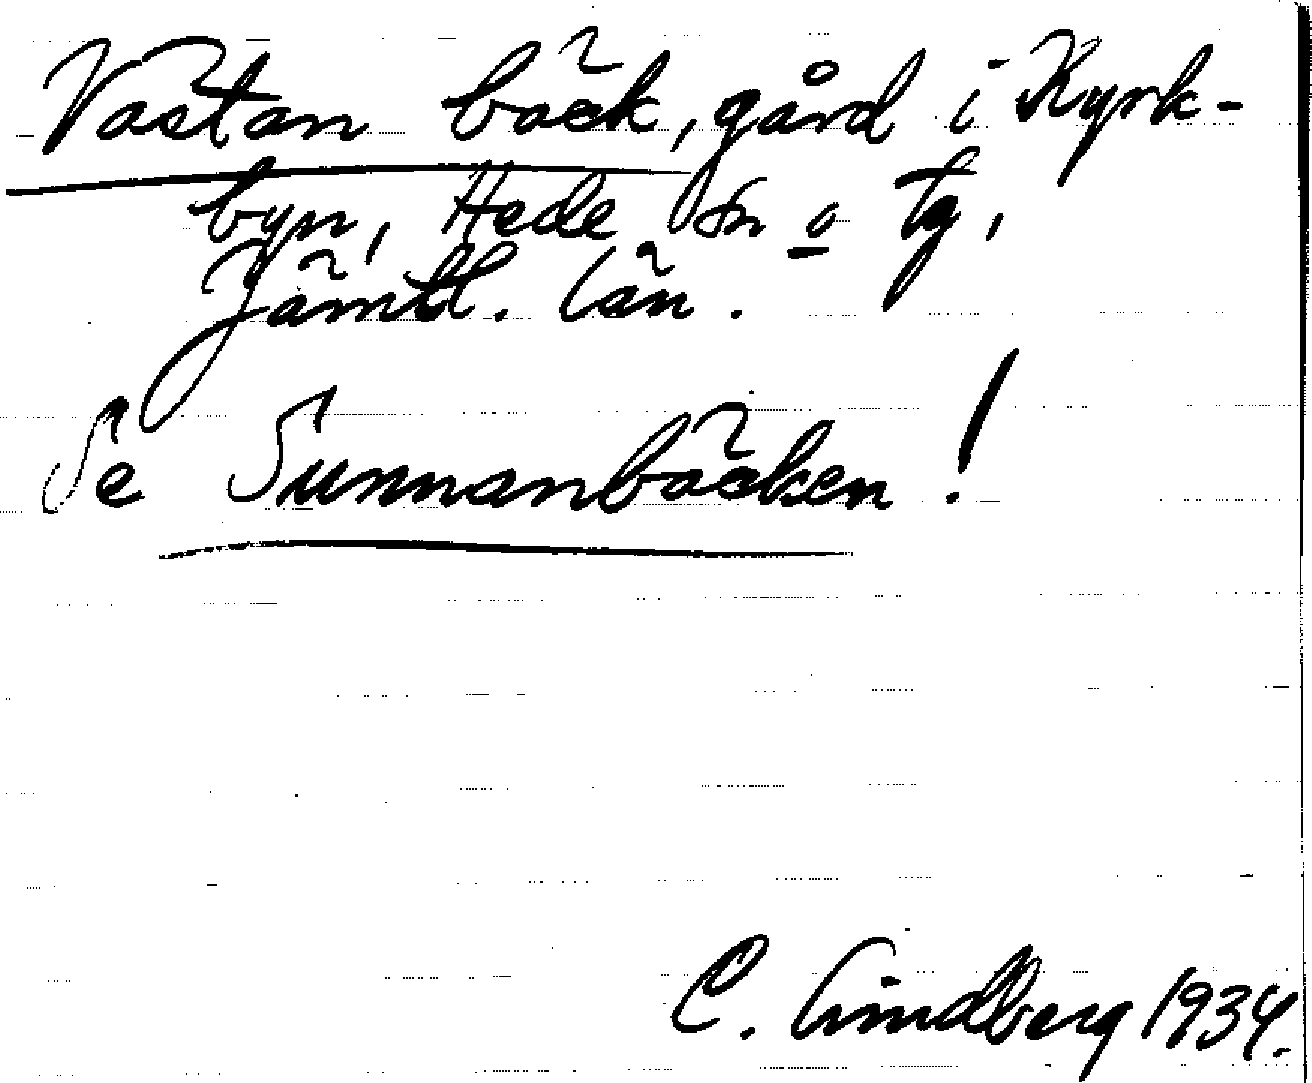 Västan bäck, gård i Kyrk-
byn, Hede Sn o tg,
Jämtl. län.
Se Sunnanbäcken!
C. Lindberg 1934.